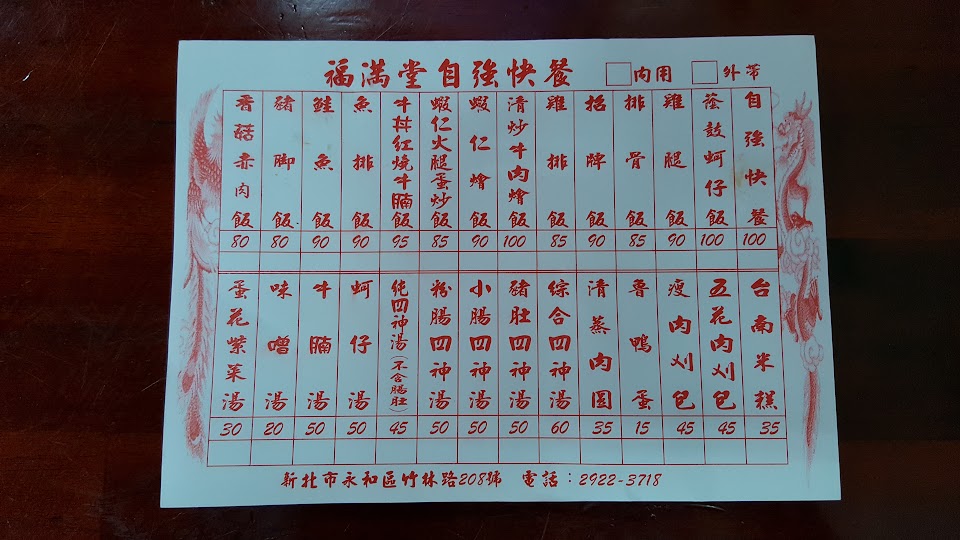 福滿堂自強快餐
內用
外帶
自強快餐
100
蔭鼓蚵仔飯
100
雞腿飯
90
排骨飯
85
招牌飯
90
雞排飯
85
清炒牛肉燴飯
100
蝦仁燴飯
90
蝦仁火腿蛋炒飯
85
牛丼紅燒牛腩飯
95
魚排飯
90
鮭魚飯
90
豬腳飯
80
香菇赤肉飯
80
台南米糕
35
五花肉刈包
45
瘦肉刈包
45
魯鴨蛋
15
清蒸肉圓
35
綜合四神湯
60
豬肚四神湯
50
小腸四神湯
50
粉腸四神湯
50
純四神湯(不含腸肚)
45
蚵仔湯
50
牛腩湯
50
味噌湯
20
蛋花紫菜湯
30
新北市永和區竹林路208號 電話：2922-3718